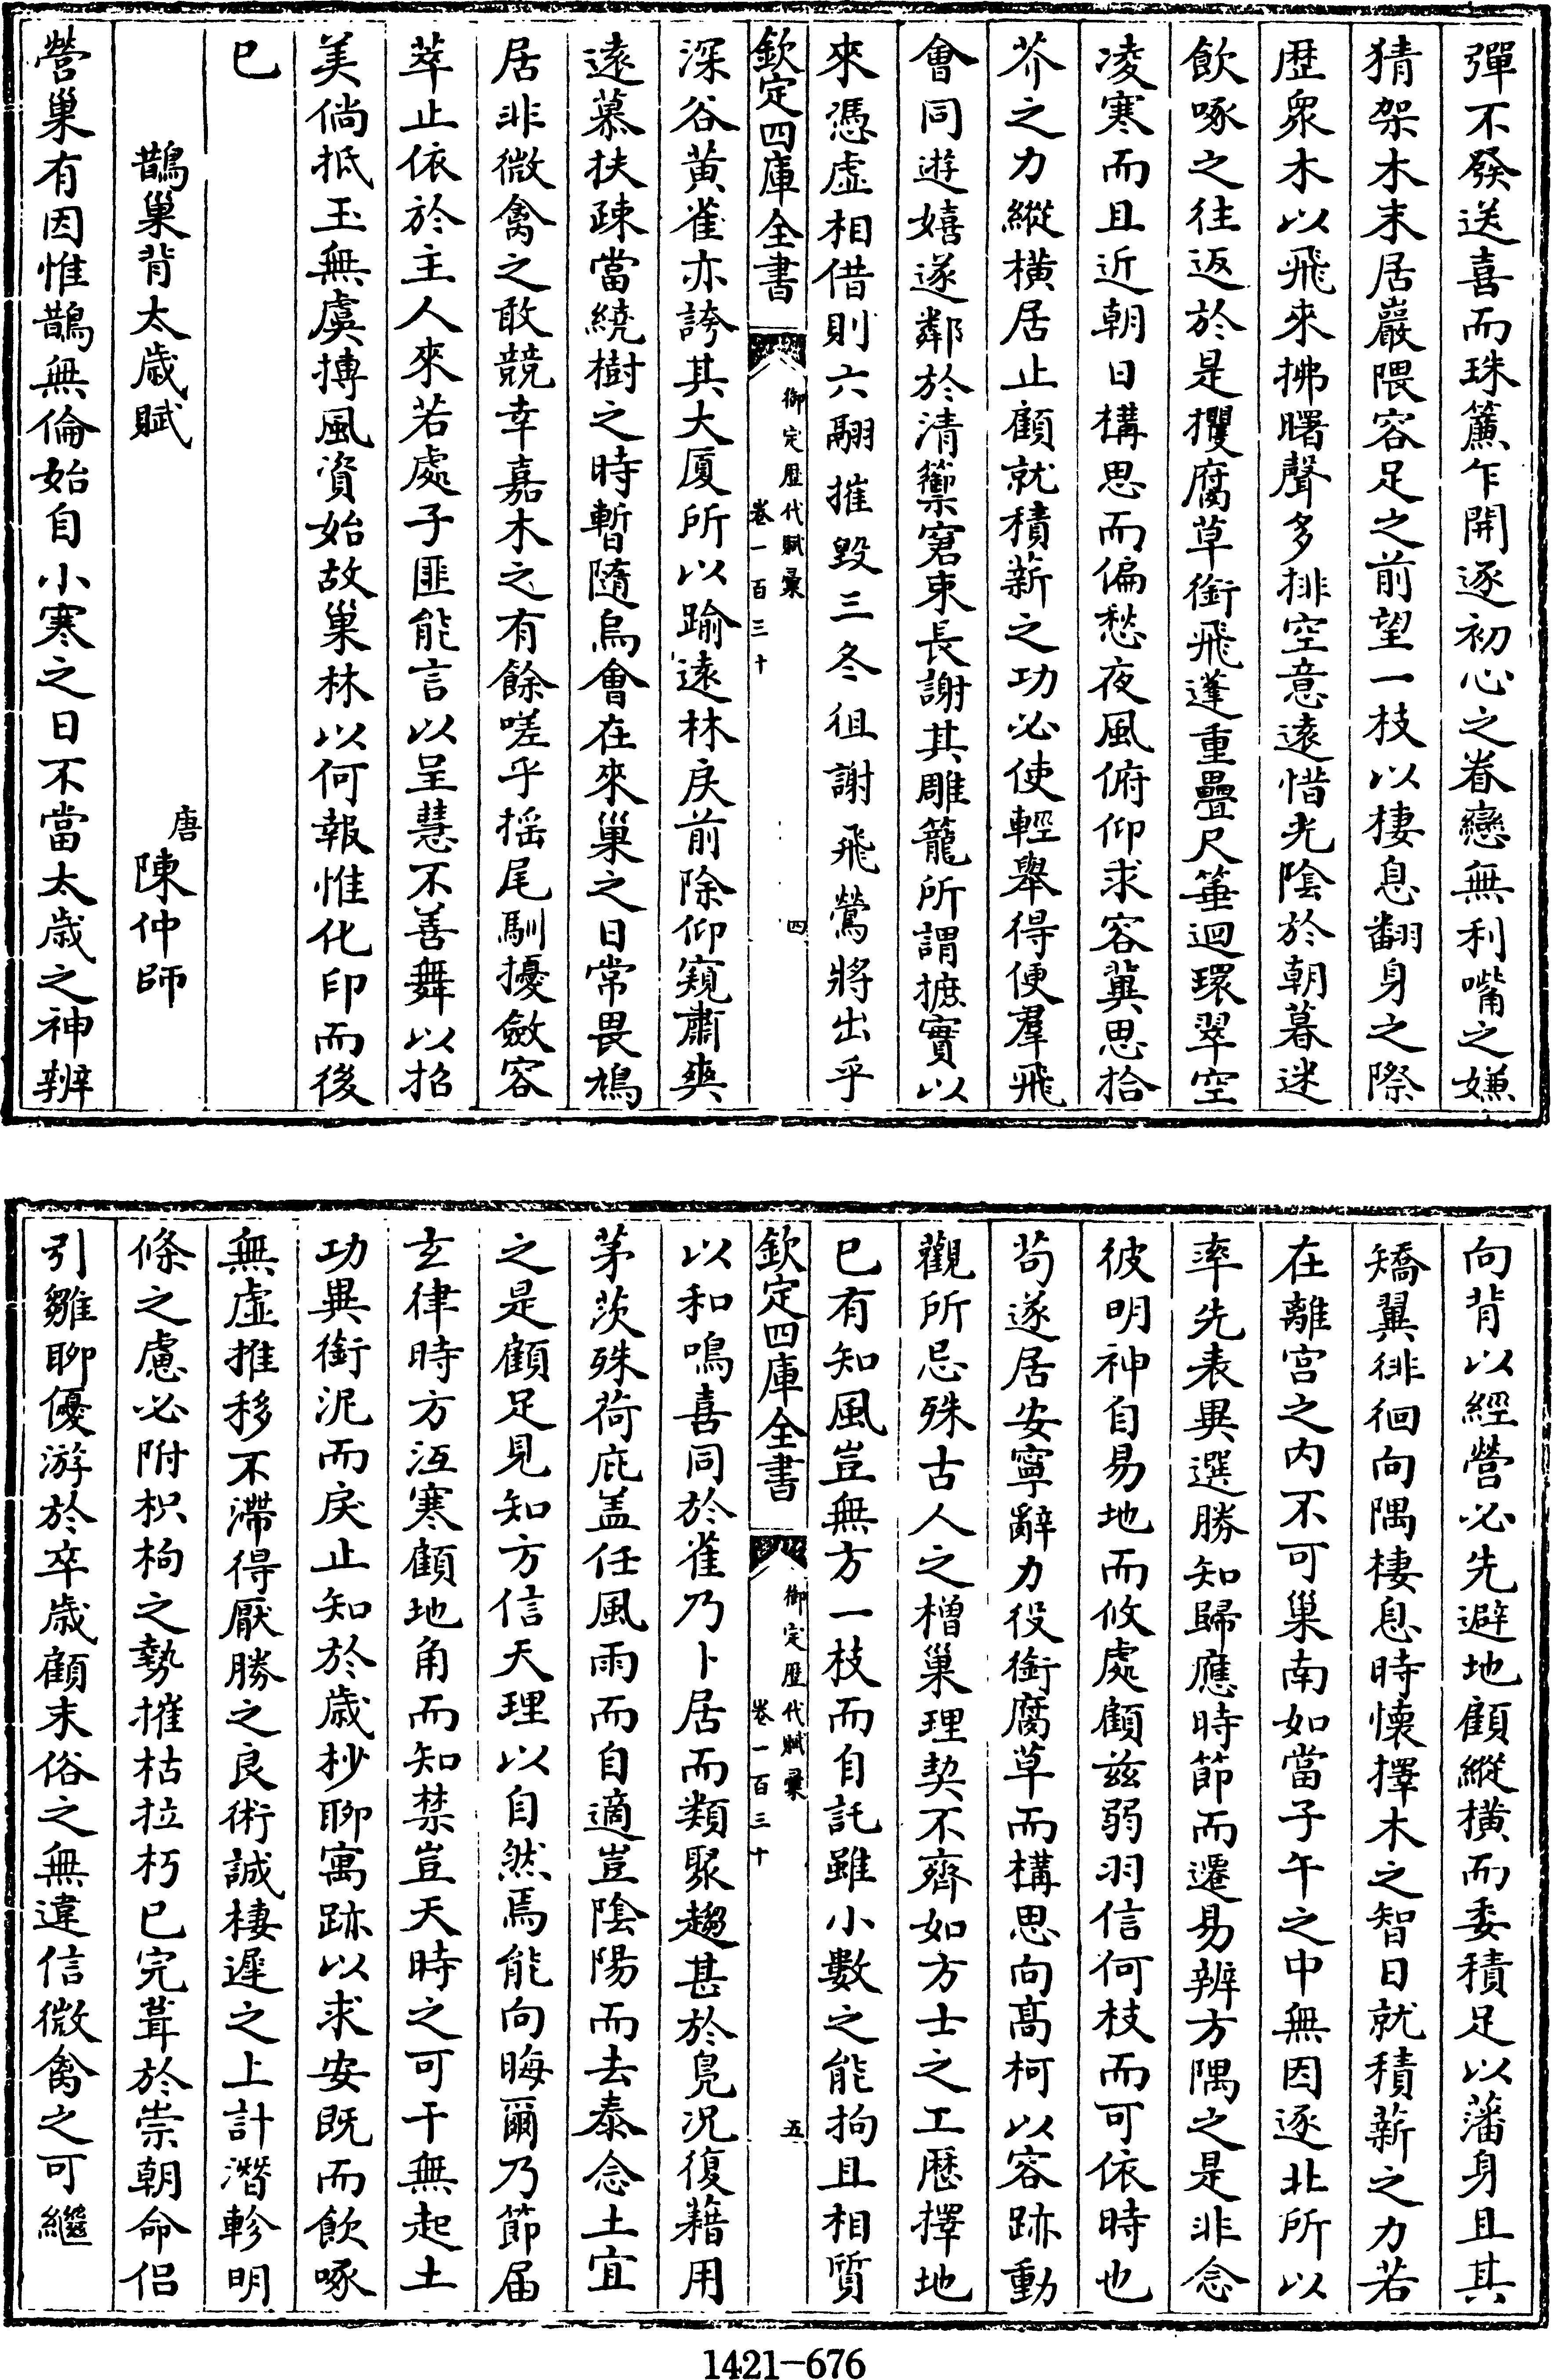 彈不發送喜而珠簾乍開逐初心之眷戀無利嘴之嫌
猜架木末居巖隈容足之前望一枝以棲息翻身之際
歴衆木以飛來拂曙聲多排空意遠惜光陰於朝暮迷
飲啄之往返於是攫腐草銜飛蓬重疊尺箠迴環翠空
凌寒而且近朝日構思而偏愁夜風俯仰求容冀思拾
芥之力縱橫居止顧就積薪之功必使輕舉得便羣飛
會同遊嬉遂鄰於清籞窘束長謝其雕籠所謂摭實以
來憑虛相借則六翮摧毀三冬徂謝飛鶯將出乎
欽定四庫全書
御定歴代賦彙
卷一百三十
四
深谷黄雀亦誇其大厦所以踰遠林戾前除仰窺肅爽
遠慕扶疎當繞樹之時暫隨烏會在來巢之日常畏鳩
居非微禽之敢競幸嘉木之有餘嗟乎揺尾馴擾斂容
萃止依於主人來若處子匪能言以呈慧不善舞以招
美倘抵玉無虞摶風資始故巢林以何報惟化印而後
已
鵲巢背太歳賦
唐陳仲師
營巢有因惟鵲無倫始自小寒之日不當太歳之神辨
向背以經營必先避地顧縱橫而委積足以藩身且其
矯翼徘徊向隅棲息時懐擇木之智日就積薪之力若
在離宫之内不可巢南如當子午之中無因逐北所以
率先表異選勝知歸應時節而遷易辨方隅之是非念
彼明神自易地而攸處顧兹弱羽信何枝而可依時也
苟遂居安寧辭力役銜腐草而構思向髙柯以容跡動
觀所忌殊古人之橧巢理契不齊如方士之工歴擇地
已有知風豈無方一枝而自託雖小數之能拘且相質
欽定四庫全書
御定歴代賦彙
卷一百三十
五
以和鳴喜同於雀乃卜居而類聚趨甚於鳬况復藉用
茅茨殊荷庇盖任風雨而自適豈陰陽而去泰念土宜
之是顧足見知方信天理以自然焉能向晦爾乃節届
玄律時方沍寒顧地角而知禁豈天時之可干無起土
功異銜泥而戾止知於歳杪聊寓跡以求安既而飲啄
無虚推移不滯得厭勝之良術誠棲遲之上計潛軫明
條之慮必附枳枸之勢摧枯拉朽已完葺於崇朝命侣
引雛聊優游於卒歳顧末俗之無違信微禽之可繼
1421-676